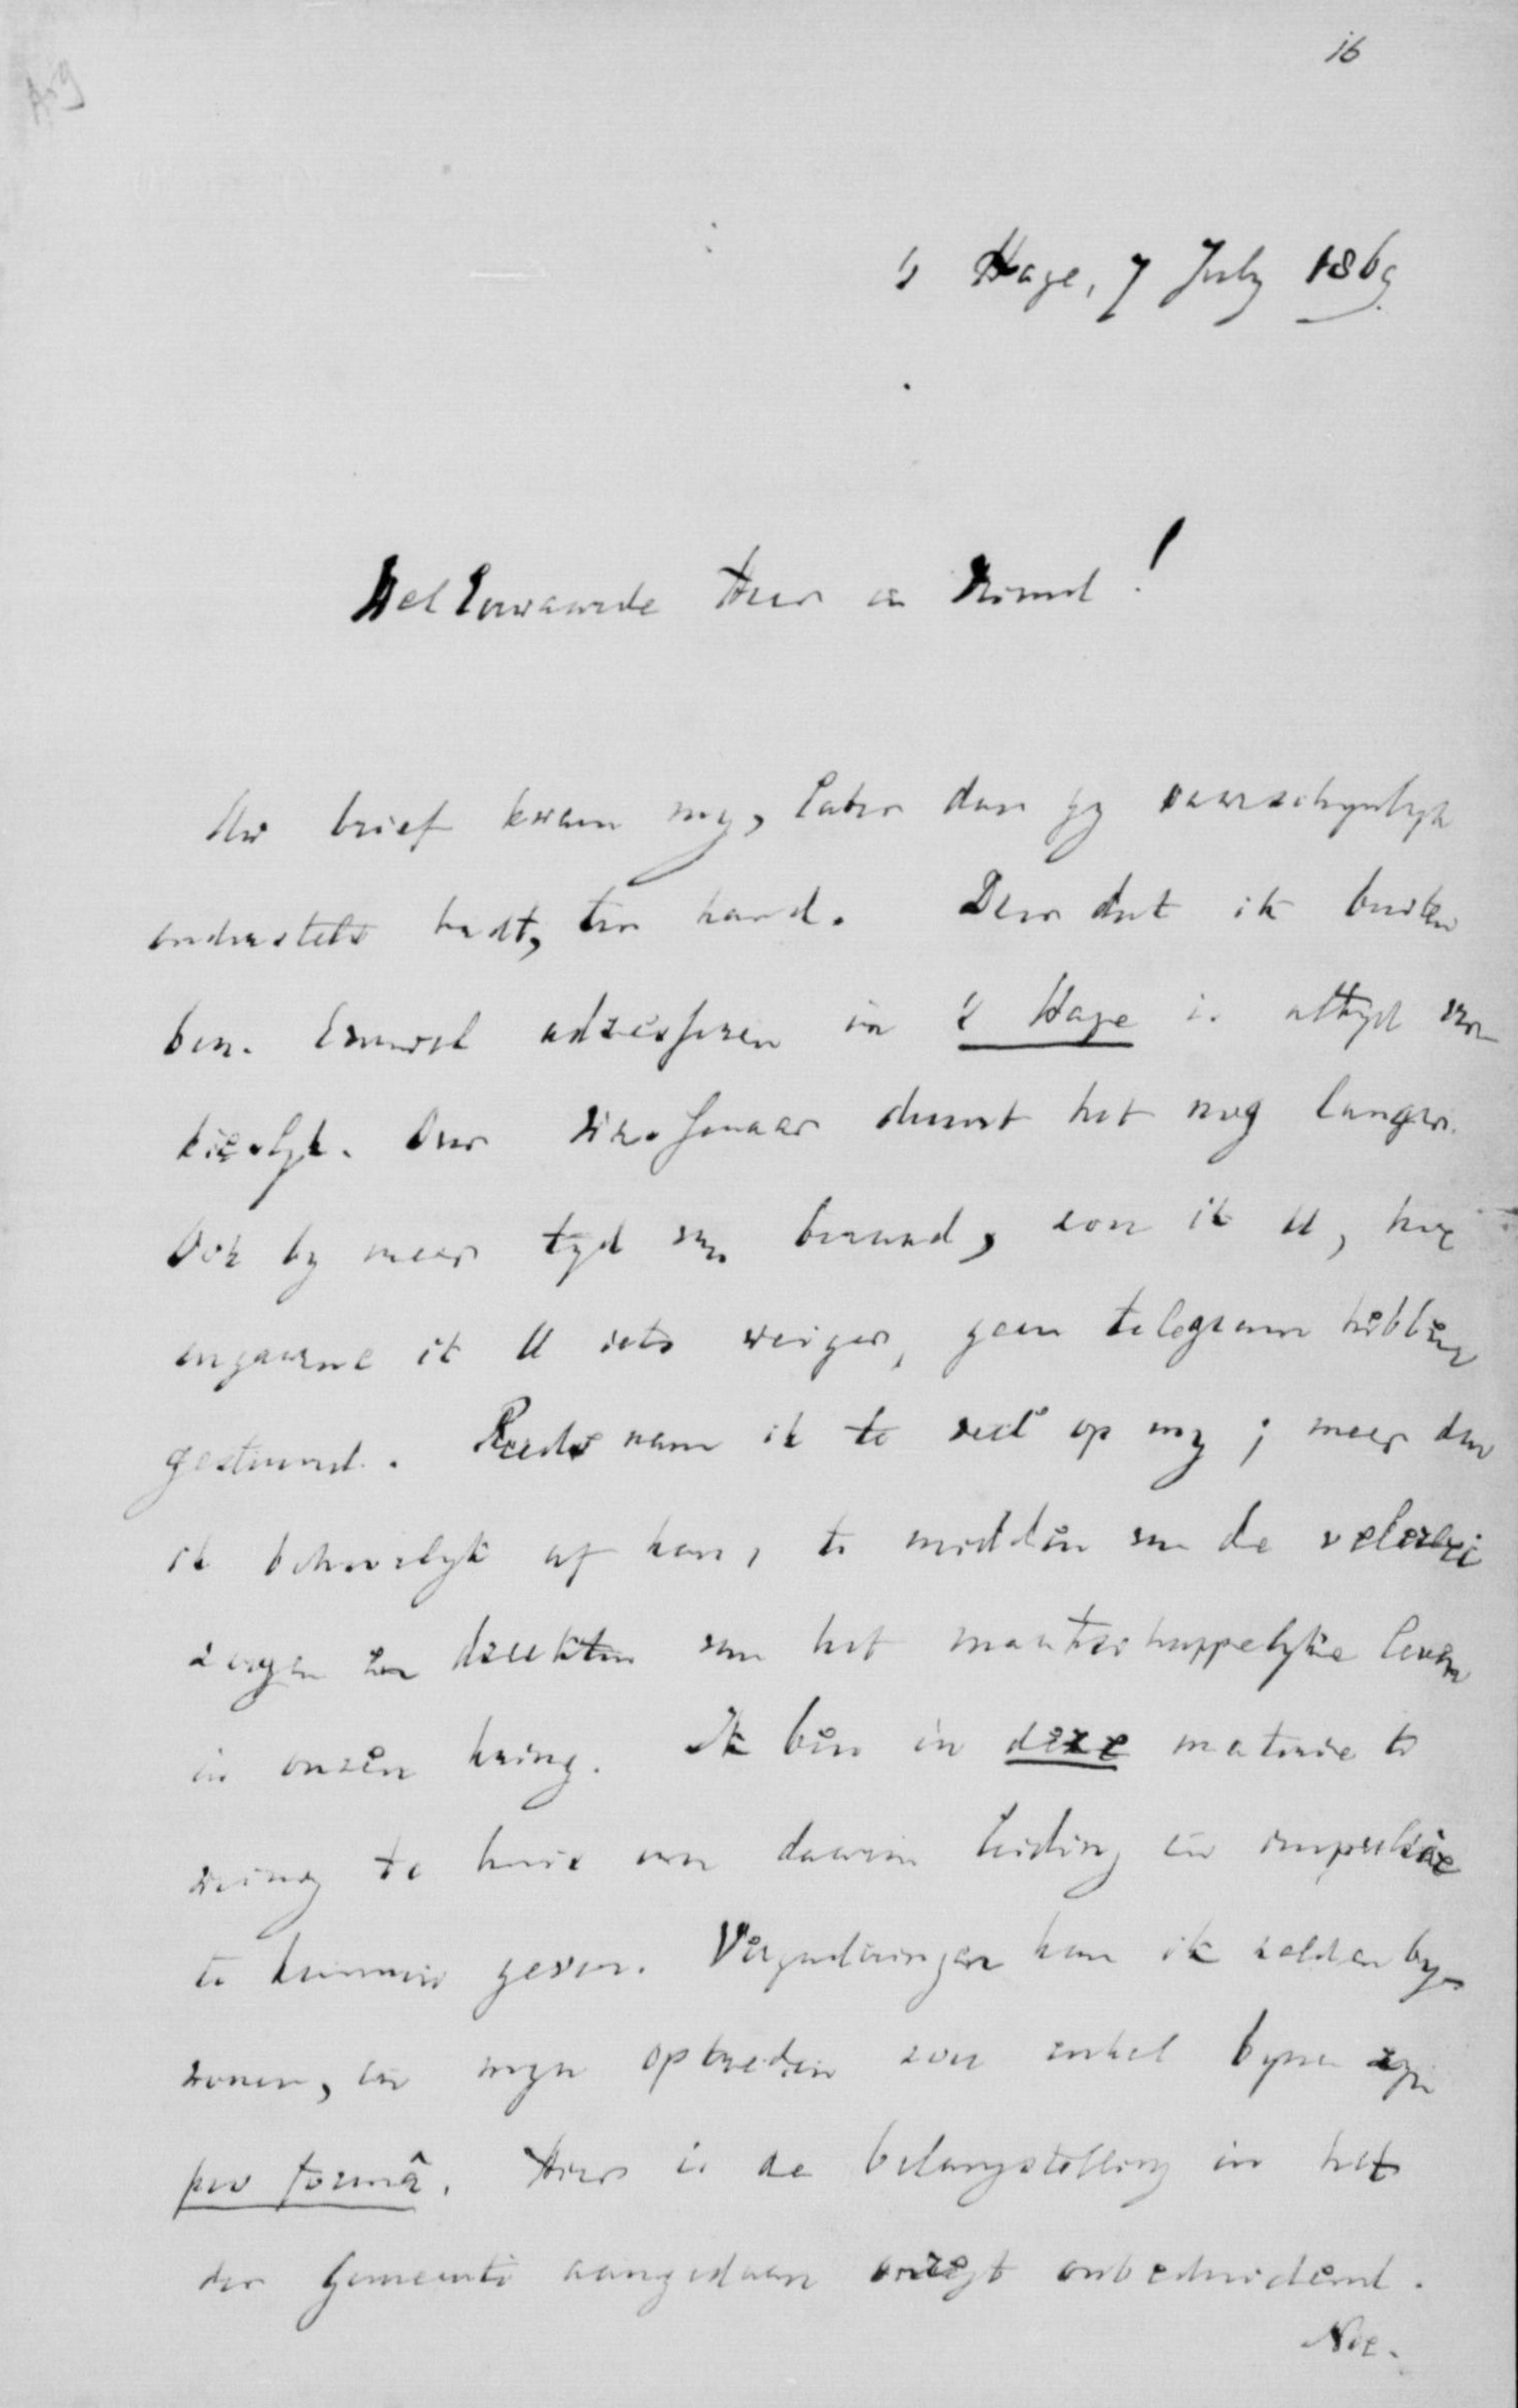 16
A 9
's Hage, 7 July 1869.
WelEerwaarde Heer en Vriend!
Uw brief kwam my, later dan gy waarschynlyk
ondersteld hadt, ter hand. Daar dat ik buiten
ben. Evenwel adresseren in 's Hage is altyd ver
kieslyk. Over duurt het nog langer.
Ook by meer tyd van beraad, zou ik U, hoe
ongaarne ik U iets weiger, geen telegram hebben
gestuurd. Reeds nam ik te veel op my; meer dan
ik behoorlyk af kan, te midden van de velerlei
zorgen en drukten van het maatschappelyke leven
in onzen kring. Ik ben in deze materie te
weinig te huis om daarin leiding en impulsie
te kunnen geven. Vergaderingen kan ik zelden by-
wonen, en myn optreden zou enkel byna zyn
pro formâ. Hier is de belangstelling in het
der Gemeente aangedaan onregt onbeduidend.
Noe-